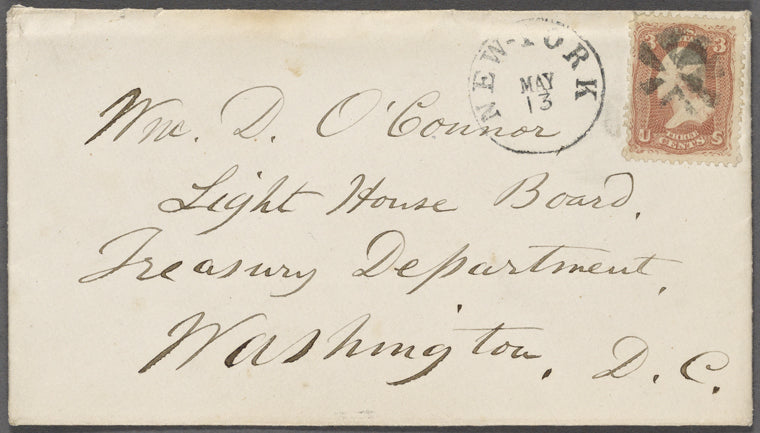 NEW-YORK
MAY
13
3 3
U THREE S
CENTS
Wm. D. O'Connor
Light House Board,
Treasury Department,
Washington, D. C.